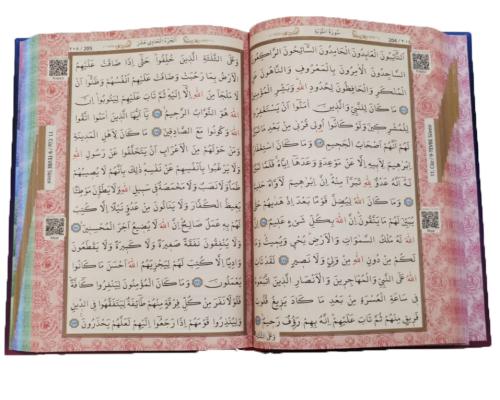 ٢٠٤ / 204
سُورَةُ التَّوْبَةِ
اَلتَّٓائِبُونَ الْعَابِدُونَ الْحَامِدُونَ السَّٓائِحُونَ الرَّاكِعُونَ
السَّاجِدُونَ الْاٰمِرُونَ بِالْمَعْرُوفِ وَالنَّاهُونَ عَنِ
الْمُنْكَرِ وَالْحَافِظُونَ لِحُدُودِ اللّٰهِ وَبَشِّرِ الْمُؤْمِنِينَ
مَا كَانَ لِلنَّبِيِّ وَالَّذِينَ اٰمَنُٓوا اَنْ يَسْتَغْفِرُوا
لِلْمُشْرِكِينَ وَلَوْ كَانُٓوا اُولِي قُرْبٰى مِنْ بَعْدِ مَا تَبَيَّنَ
لَهُمْ اَنَّهُمْ اَصْحَابُ الْجَحِيمِ ﴿١١٣﴾ وَمَا كَانَ اسْتِغْفَارُ
اِبْرٰهِيمَ لِاَبِيهِ اِلَّا عَنْ مَوْعِدَةٍ وَعَدَهَٓا اِيَّاهُ فَلَمَّا تَبَيَّنَ
لَهُٓ اَنَّهُ عَدُوٌّ لِلّٰهِ تَبَرَّاَ مِنْهُ اِنَّ اِبْرٰهِيمَ لَاَوَّاهٌ حَلِيمٌ
﴿١١٤﴾ وَمَا كَانَ اللّٰهُ لِيُضِلَّ قَوْمًا بَعْدَ اِذْ هَدٰيهُمْ حَتّٰى
يُبَيِّنَ لَهُمْ مَا يَتَّقُونَ اِنَّ اللّٰهَ بِكُلِّ شَيْءٍ عَلِيمٌ ﴿١١٥﴾ اِنَّ
اللّٰهَ لَهُ مُلْكُ السَّمٰوَاتِ وَالْاَرْضِ يُحْيِي وَيُمِيتُ وَمَا لَكُمْ
مِنْ دُونِ اللّٰهِ مِنْ وَلِيٍّ وَلَا نَصِيرٍ ﴿١١٦﴾ لَقَدْ تَابَ
اللّٰهُ عَلَى النَّبِيِّ وَالْمُهَاجِرِينَ وَالْاَنْصَارِ الَّذِينَ اتَّبَعُوهُ
فِي سَاعَةِ الْعُسْرَةِ مِنْ بَعْدِ مَا كَادَ يَزِيغُ قُلُوبُ
فَرِيقٍ مِنْهُمْ ثُمَّ تَابَ عَلَيْهِمْ اِنَّهُ بِهِمْ رَؤُفٌ رَحِيمٌ ﴿١١٧﴾
اَلْجُزْءُ الْحَادِي عَشَرَ
٢٠٥ / 205
وَعَلَى الثَّلٰثَةِ الَّذِينَ خُلِّفُوا حَتّٰٓى اِذَا ضَاقَتْ عَلَيْهِمُ
الْاَرْضُ بِمَا رَحُبَتْ وَضَاقَتْ عَلَيْهِمْ اَنْفُسُهُمْ وَظَنُّٓوا اَنْ
لَا مَلْجَاَ مِنَ اللّٰهِ اِلَّٓا اِلَيْهِ ثُمَّ تَابَ عَلَيْهِمْ لِيَتُوبُوا اِنَّ
اللّٰهَ هُوَ التَّوَّابُ الرَّحِيمُ ﴿١١٨﴾ يَٓا اَيُّهَا الَّذِينَ اٰمَنُوا اتَّقُوا
اللّٰهَ وَكُونُوا مَعَ الصَّادِقِينَ ﴿١١٩﴾ مَا كَانَ لِاَهْلِ الْمَدِينَةِ
وَمَنْ حَوْلَهُمْ مِنَ الْاَعْرَابِ اَنْ يَتَخَلَّفُوا عَنْ رَسُولِ اللّٰهِ
وَلَا يَرْغَبُوا بِاَنْفُسِهِمْ عَنْ نَفْسِهِ ذٰلِكَ بِاَنَّهُمْ لَا يُصِيبُهُمْ
ظَمَاٌ وَلَا نَصَبٌ وَلَا مَخْمَصَةٌ فِي سَبِيلِ اللّٰهِ وَلَا يَطَؤُنَ مَوْطِئًا
يَغِيظُ الْكُفَّارَ وَلَا يَنَالُونَ مِنْ عَدُوٍّ نَيْلًا اِلَّا كُتِبَ
لَهُمْ بِهِ عَمَلٌ صَالِحٌ اِنَّ اللّٰهَ لَا يُضِيعُ اَجْرَ الْمُحْسِنِينَ ﴿١٢٠﴾
وَلَا يُنْفِقُونَ نَفَقَةً صَغِيرَةً وَلَا كَبِيرَةً وَلَا يَقْطَعُونَ
وَادِيًا اِلَّا كُتِبَ لَهُمْ لِيَجْزِيَهُمُ اللّٰهُ اَحْسَنَ مَا كَانُوا
يَعْمَلُونَ ﴿١٢١﴾ وَمَا كَانَ الْمُؤْمِنُونَ لِيَنْفِرُوا كَٓافَّةً
فَلَوْلَا نَفَرَ مِنْ كُلِّ فِرْقَةٍ مِنْهُمْ طَٓائِفَةٌ لِيَتَفَقَّهُوا فِي الدِّينِ
وَلِيُنْذِرُوا قَوْمَهُمْ اِذَا رَجَعُٓوا اِلَيْهِمْ لَعَلَّهُمْ يَحْذَرُونَ